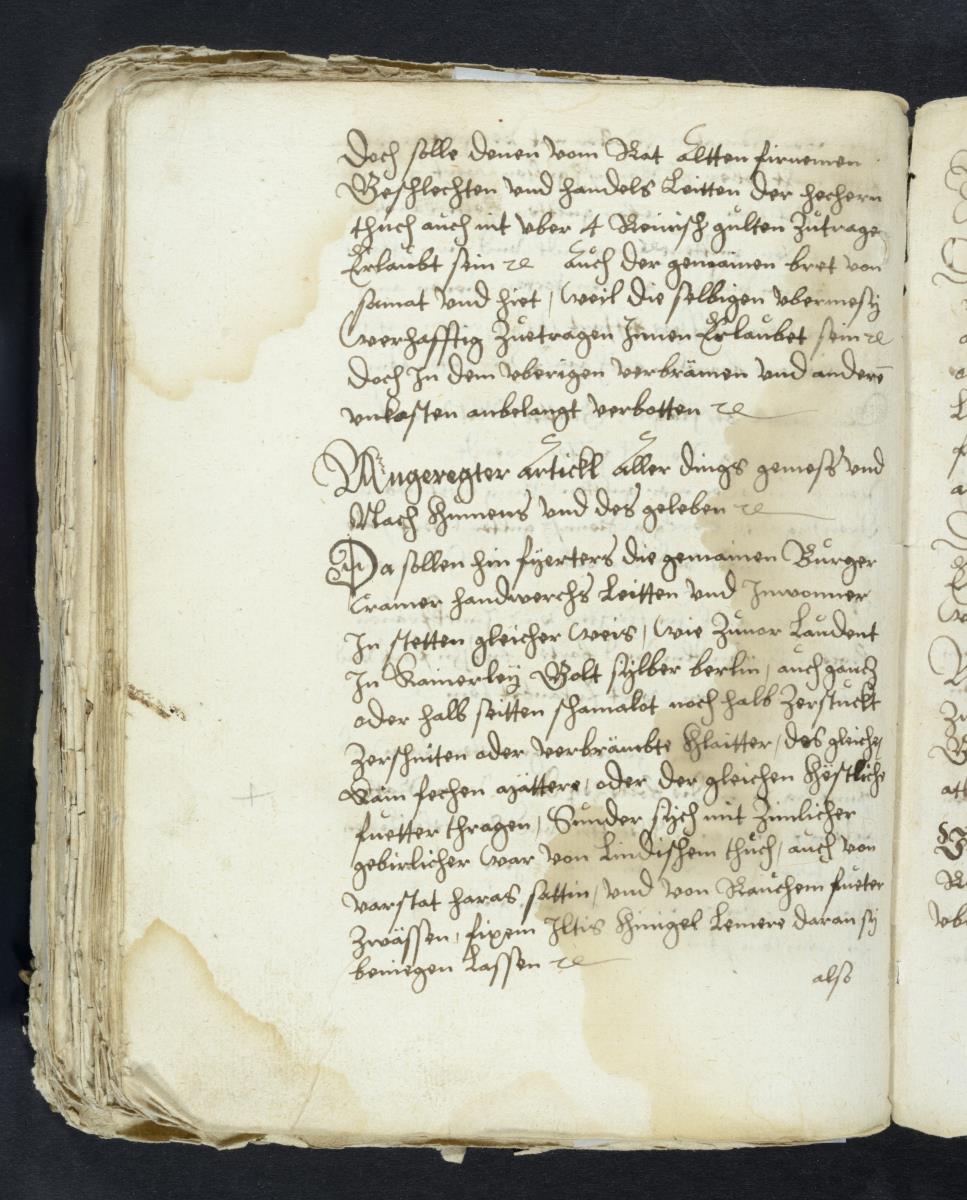 Doch solle denen vom Rat Altten firnemen
Geschlechten vnd handels Leitten der hechern
thuch auch nit vber 4 Reinisch gulten Zutrage
Erlaubt sein ꝛc Auch der gemainen bret von
samat vnd hiet, weil die selbigen vbermesig
werhafftig Zuetragen Innen Erlaubet sein ꝛc
Doch In dem vberigen verbrämen vnd anderē
vnkosten anbelangt verbotten ꝛc
Angeregter Artickl Aller dings gemess vnd
Nach khumens vnd des geleben ꝛc
Da sollen hin fyerters die gemainen Burger
Cramer handwerchs Leitten vnd Inwonner
In stetten gleicher weis, wie Zuuor Laudent
In Kainerley Golt sylber berlin, auch gantz
oder halb seitten schamalot noch halb Zerstuckt
Zerschniten oder verbrämbte khlaitter, des gleiche,
Kain fechen mättere, oder der gleichen khöstliche
fuetter thragen, Sunder sych mit Zimlicher
gebirlicher war von Lindischem thuch, auch von
varstat haras sattin, vnd von Rauchem fueter
fixem Iltis khinigel Lemere daran sy
beniegen Lassen ꝛc
also